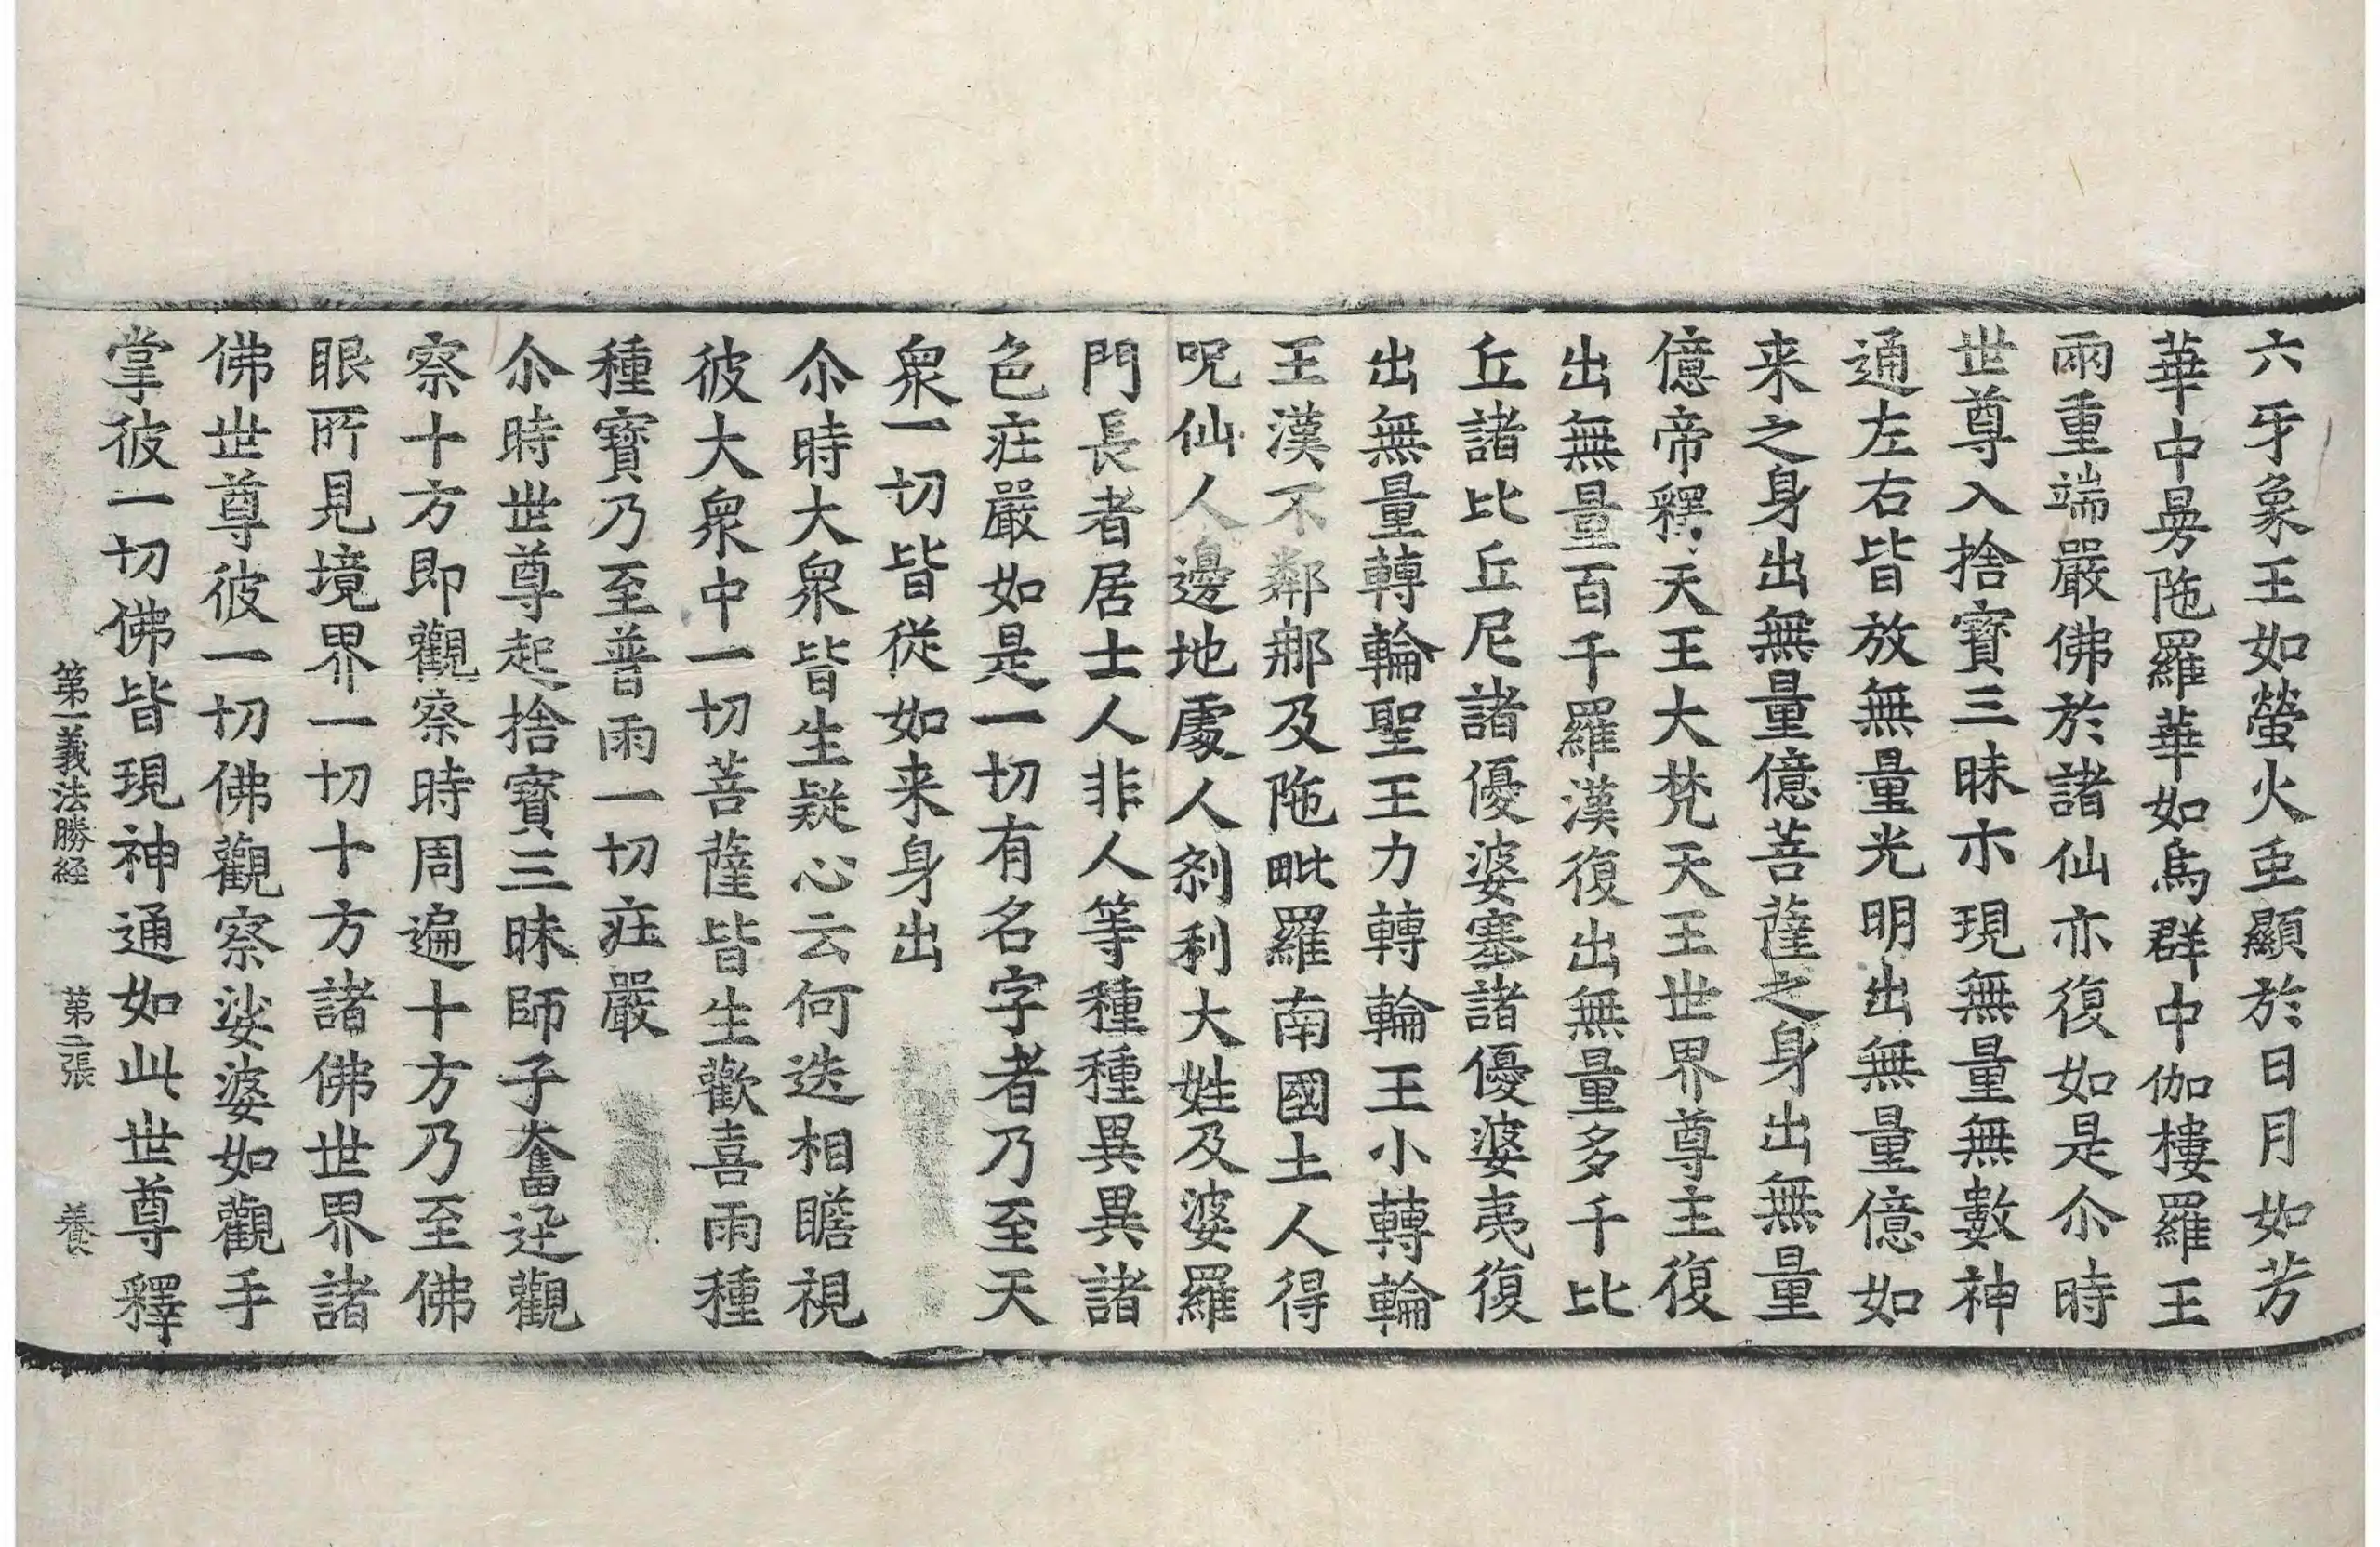 六牙象王如螢火垂顯於日月如芳
華中曼陁羅華如烏群中伽樓羅王
兩重端嚴佛於諸仙亦復如是尒時
世尊入捨寶三昧亦現無量無數神
通左右皆放無量光明出無量億如
来之身出無量億菩薩之身出無量
億帝釋天王大梵天王世界尊主復
出無量百千羅漢復出無量多千比
丘諸比丘尼諸優婆塞諸優婆夷復
出無量轉輪聖王力轉輪王小轉輪
王漢不鄰那及陁毗羅南國土人得
呪仙人邊地處人刹利大姓及婆羅
門長者居士人非人等種種異異諸
色莊嚴如是一切有名字者乃至天
衆一切皆從如来身出
尒時大衆皆生疑心云何迭相瞻視
彼大衆中一切菩薩皆生歡喜雨種
種寶乃至普雨一切莊嚴
尒時世尊起捨寶三昧師子奮迅觀
察十方即觀察時周遍十方乃至佛
眼所見境界一切十方諸佛世界諸
佛世尊彼一切佛觀察娑婆如觀手
掌彼一切佛皆現神通如此世尊釋
第一義法勝経 第二張 養